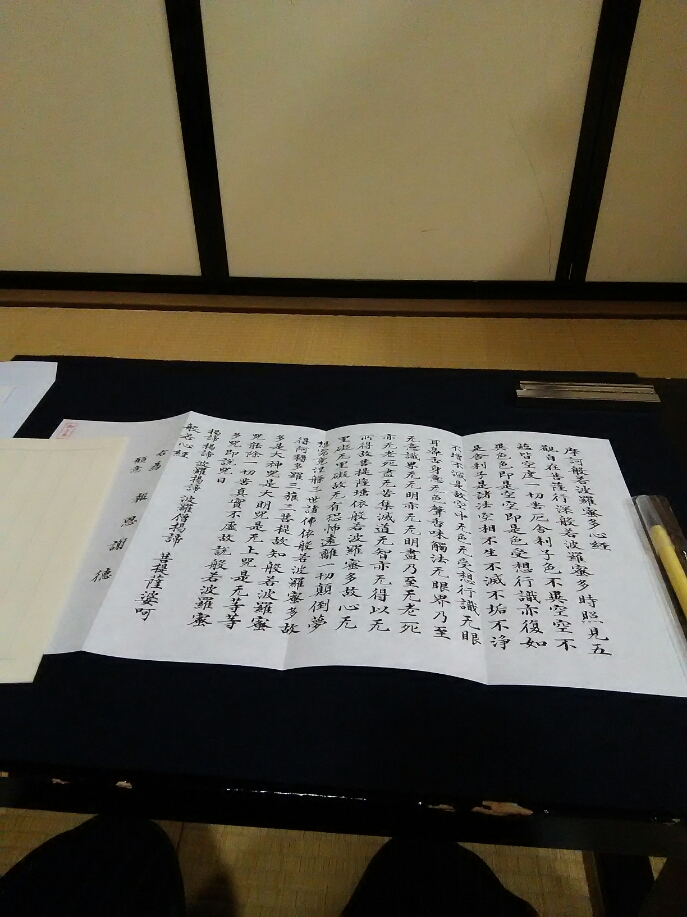 摩訶般若波羅蜜多心経
観自在菩薩行深般若波羅蜜多時照見五
蘊皆空度一切苦厄舎利子色不異空空不
異色色即是空空即是色受想行識亦復如
是舎利子是諸法空相不生不滅不垢不浄
不増不減是故空中无色无受想行識无眼
耳鼻舌身意无色聲香味觸法无眼界乃至
无意識界无无明亦无无明盡乃至无老死
亦无老死盡无苦集滅道无智亦无得以无
所得故菩提薩埵依般若波羅蜜多故心无
罣礙无罣礙故无有恐怖遠離一切顛倒夢
想究竟涅槃三世諸佛依般若波羅蜜多故
得阿耨多羅三藐三菩提故知般若波羅蜜
多是大神咒是大明咒是无上咒是无等等
咒能除一切苦真實不虚故説般若波羅蜜
多咒即説咒曰
揭諦揭諦 波羅揭諦 波羅僧揭諦 菩提薩婆呵
般若心経
右為
願意 報恩謝德